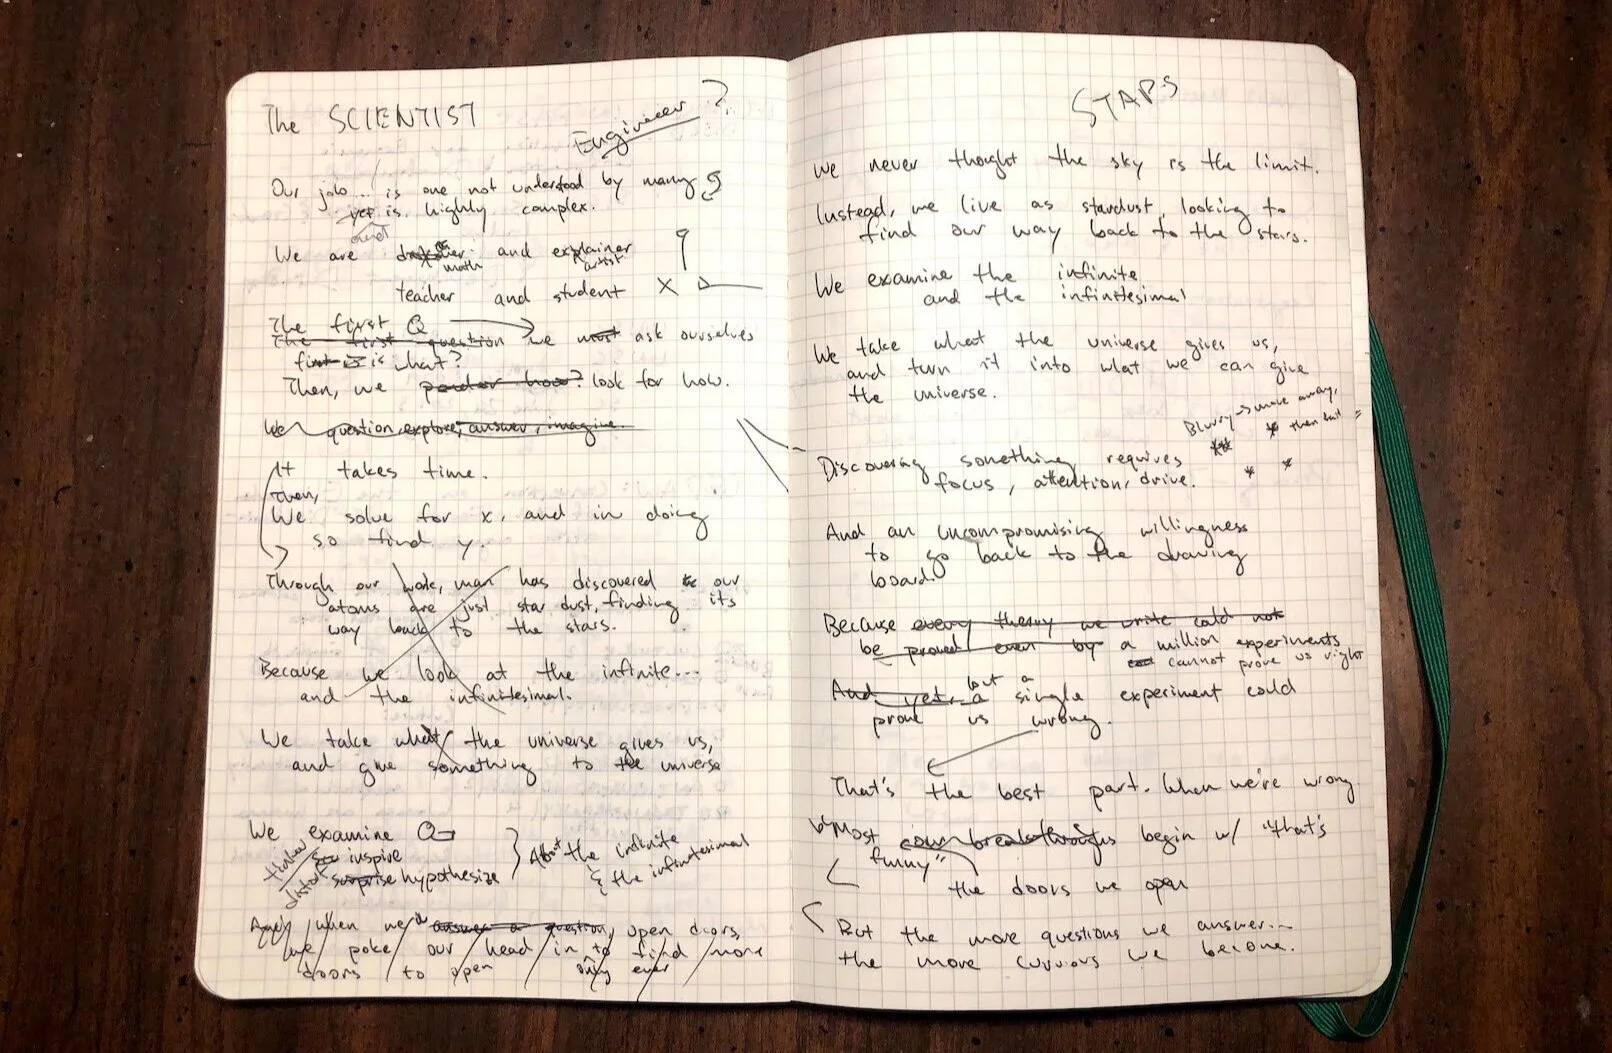 The SCIENTIST
Engineer ?
Our job... is one not understood by many
yet is highly complex.
and
We are and explainer
math artist
teacher and student X
The first Q
The first question we must ask ourselves
first is is what?
Then, we ponder how? look for how.
We question, explore, answer, imagine.
It takes time.
Then,
We solve for x, and in doing
so find y.
Through our work, man has discovered our
atoms are just star dust, finding its
way back to the stars.
Because we look at the infinite...
and the infinitesimal.
We take what the universe gives us,
and give something to the universe
We examine Q
tinker inspire
distort surprise hypothesize
About the infinite
& the infinitesimal
And when we answer a question, open doors,
we poke our head in to find more
doors to open only ever
STARS
We never thought the sky is the limit.
Instead, we live as stardust, looking to
find our way back to the stars.
We examine the infinite
and the infinitesimal
We take what the universe gives us,
and turn it into what we can give
the universe.
Blurry → move away,
then wait
Discovering something requires
focus, attention, drive.
And an uncompromising willingness
to go back to the drawing
board.
Because every theory we write could not
be proved even by a million experiments
cannot prove us right
And yet, a but a single experiment could
prove us wrong.
That's the best part. When we're wrong.
Most breakthroughs begin w/ "that's
funny"
the doors we open
But the more questions we answer...
the more curvious we become.